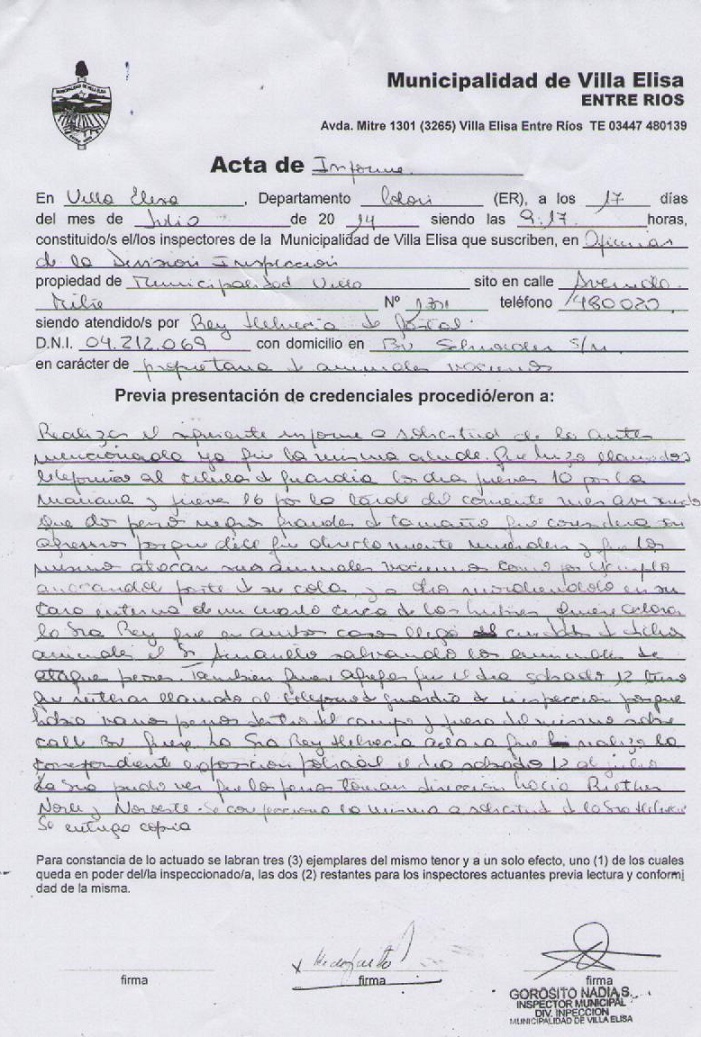 Municipalidad de Villa Elisa
ENTRE RIOS
Avda. Mitre 1301 (3265) Villa Elisa Entre Ríos TE 03447 480139
Acta de Informe
En Villa Elisa, Departamento Colon (ER), a los 17 días
del mes de Julio de 2014 siendo las 9:17 horas,
constituido/s el/los inspectores de la Municipalidad de Villa Elisa que suscriben, en Oficinas
de la Division Inspeccion
propiedad de Municipalidad Villa sito en calle Avenida
Mitre Nº teléfono 480020
siendo atendido/s por Rey Helvecia de
D.N.I. 04.212.069 con domicilio en Bv s/n
en carácter de propietaria de animales vacunos
Previa presentación de credenciales procedió/eron a:
Realizar el siguiente informe a solicitud de la antes
mencionada ya que la misma Que hizo llamados
telefonico al celular de guardia los dia jueves 10 por la
mañana y jueves 16 por la tarde del corriente mes
que dos perro negro grandes de tamaño que considera
agresivos porque dice que directamente muerden y que los
mismo atacan sus animales vacunos como por ejemplo
arrancandole parte de su cola, y a otro mordiendolo en su
cara interna de un cuarto cerca de las Quiere aclarar
la Sra Rey que en ambos casos llego el cuidador de dichos
animales el Sr salvando los animales de
ataque perros. Tambien quiere agregar que el dia sabado 12 tuvo
que reiterar llamado al telefono de guardia de inspeccion porque
habia varios perros dentro del campo y fuera del mismo sobre
calle Bv La Sra Rey Helvecia aclara que realizo la
correspondiente exposicion policial el dia sabado 12 de julio
La Sra pudo ver que los perros toman direccion hacia
Norte y Noroeste. Se la misma a solicitud de la Sra Helvecia
Se entrego copia
Para constancia de lo actuado se labran tres (3) ejemplares del mismo tenor y a un solo efecto, uno (1) de los cuales
queda en poder del/la inspeccionado/a, las dos (2) restantes para los inspectores actuantes previa lectura y conformi
dad de la misma.
firma
firma
firma
GOROSITO NADIA S.
INSPECTOR MUNICIPAL
DIV. INPECCION
MUNICIPALIDAD DE VILLA ELISA